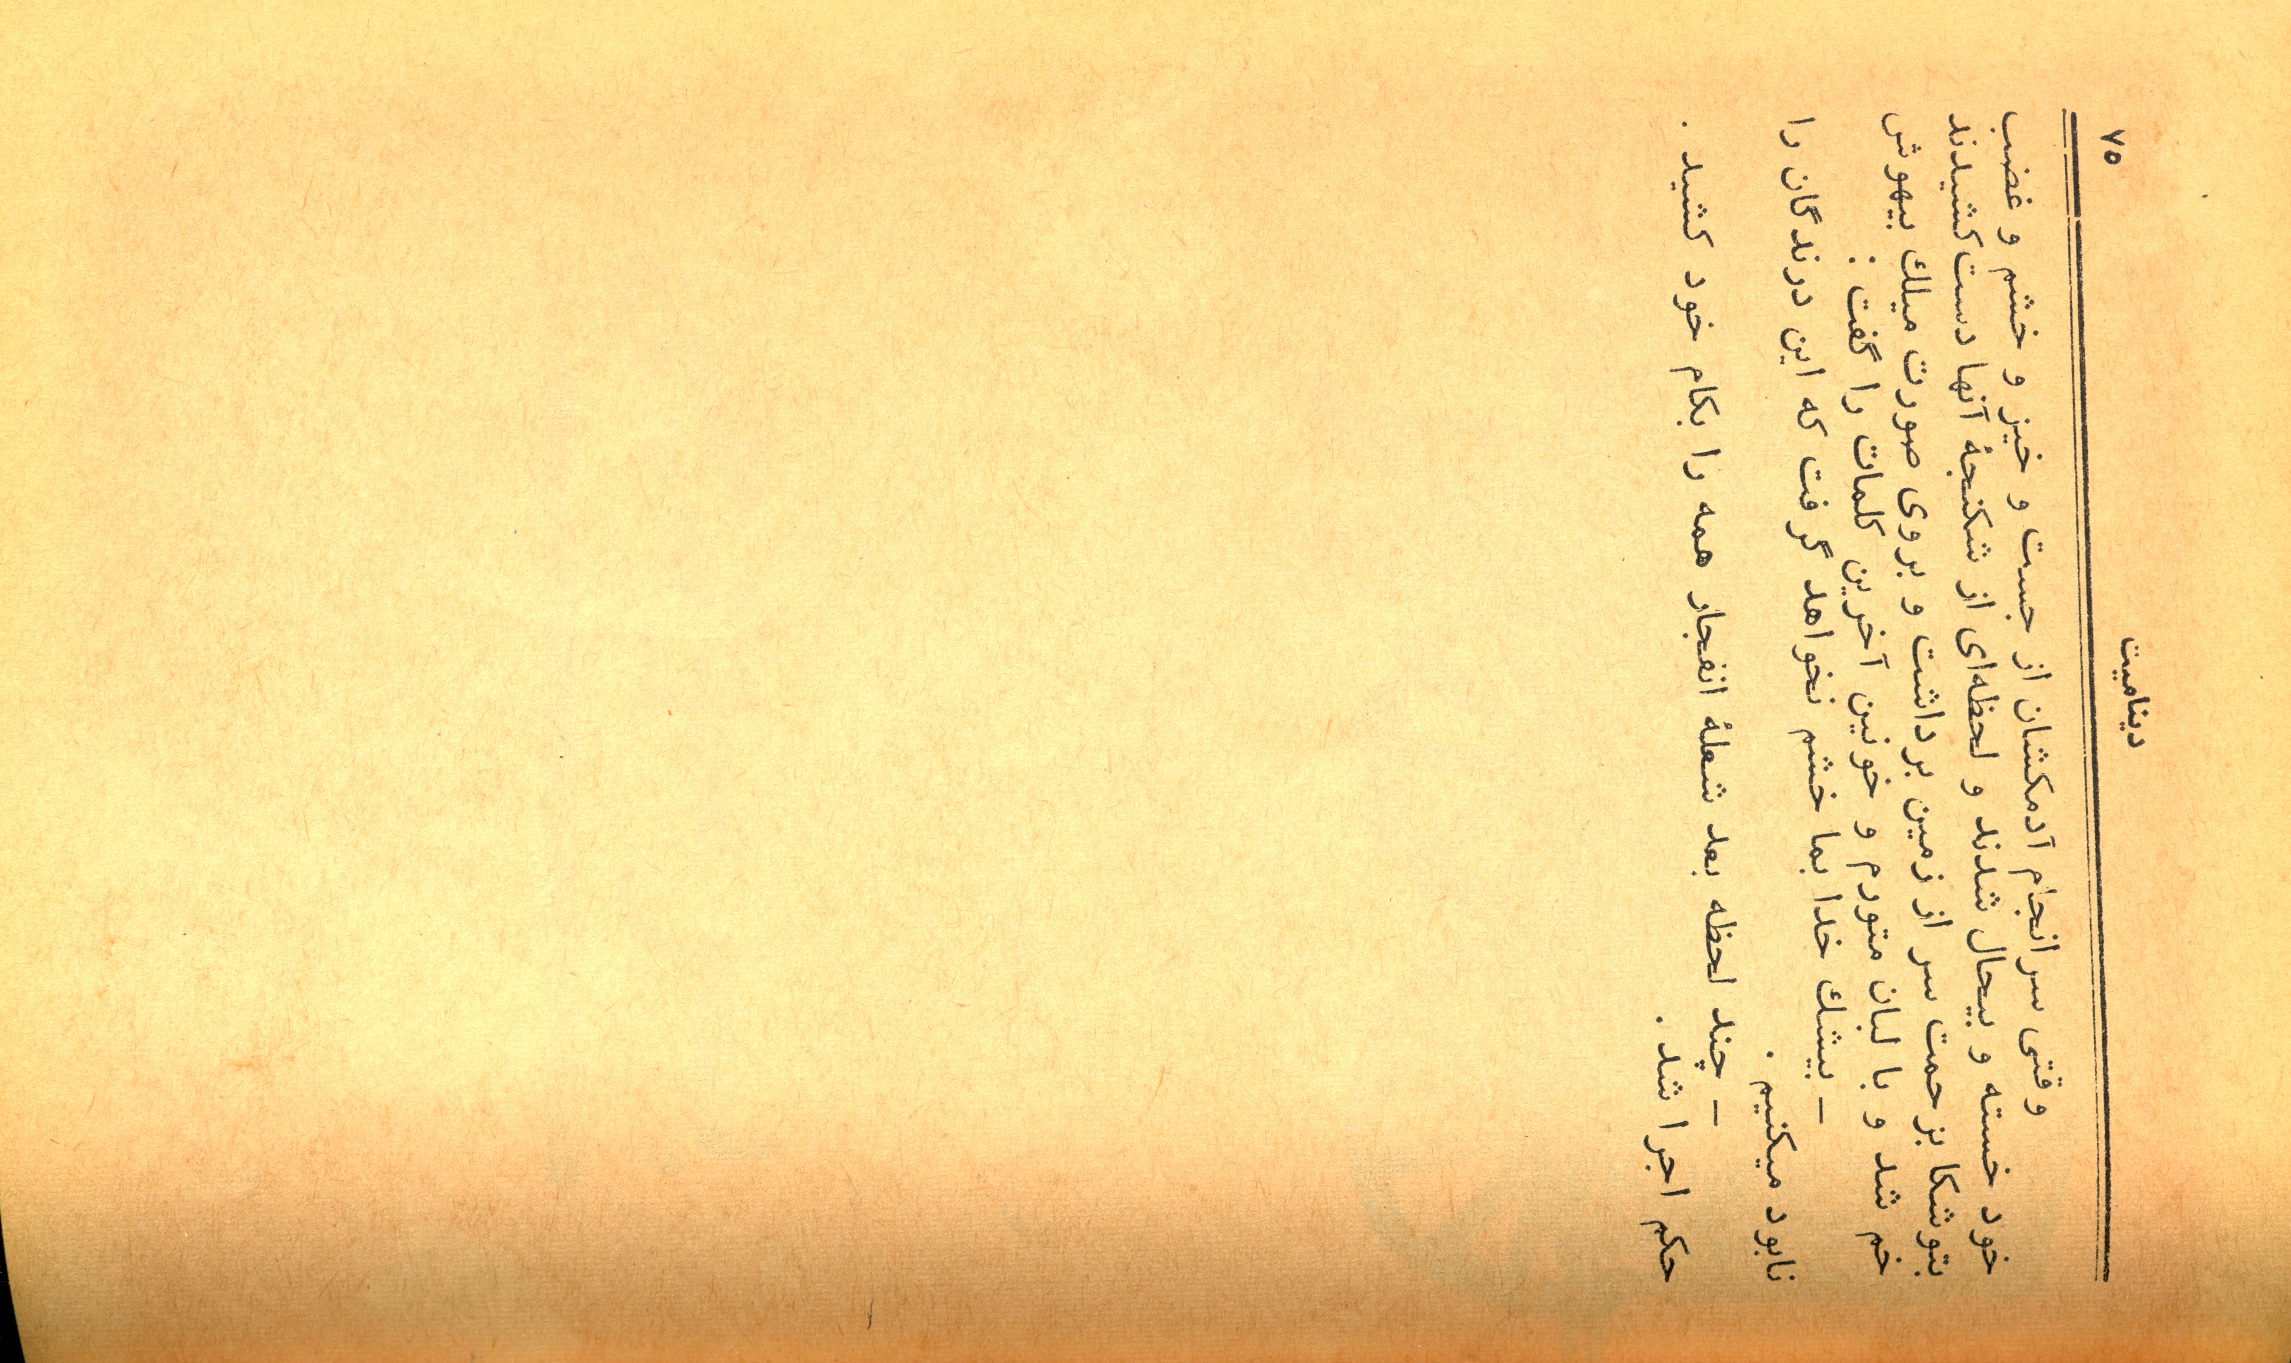 ۷۵
دینامیت
وقتی سرانجام آدمکشان از جست و خیز و خشم و غضب
خود خسته و بیحال شدند و لحظه‌ای از شکنجهٔ آنها دست کشیدند
بتوشکا بزحمت سر از زمین برداشت و بروی صورت میلك بیهوش
خم شد و با لبان متورم و خونین آخرین کلمات را گفت :
ـ بیشك خدا بما خشم نخواهد گرفت که این درندگان را
نابود میکنیم .
ـ چند لحظه بعد شعلهٔ انفجار همه را بکام خود کشید .
حکم اجرا شد .